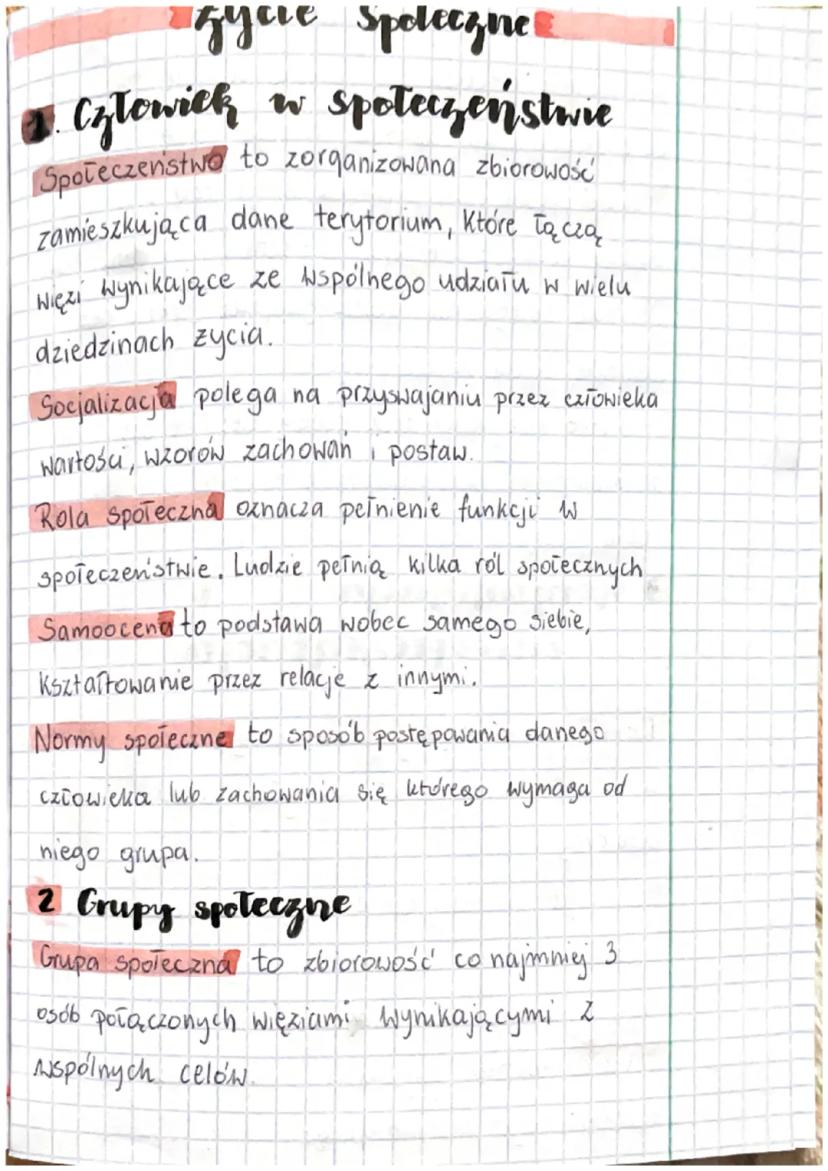 Życie Społeczne
1. Człowiek w społeczeństwie
Społeczeństwo to zorganizowana zbiorowość
zamieszkująca dane terytorium, które łączą
więzi wynikające ze wspólnego udziału w wielu
dziedzinach życia.
Socjalizacja polega na przyswajaniu przez człowieka
wartości, wzorów zachowań i postaw.
Rola społeczna oznacza pełnienie funkcji w
społeczeństwie. Ludzie pełnią kilka ról społecznych
Samoocena to podstawa wobec samego siebie,
kształtowanie przez relacje z innymi.
Normy społeczne to sposób postępowania danego
człowieka lub zachowania się którego wymaga od
niego grupa.
2 Grupy społeczne
Grupa społeczna to zbiorowość co najmniej 3
osób połączonych więziami wynikającymi z
wspólnych celów.